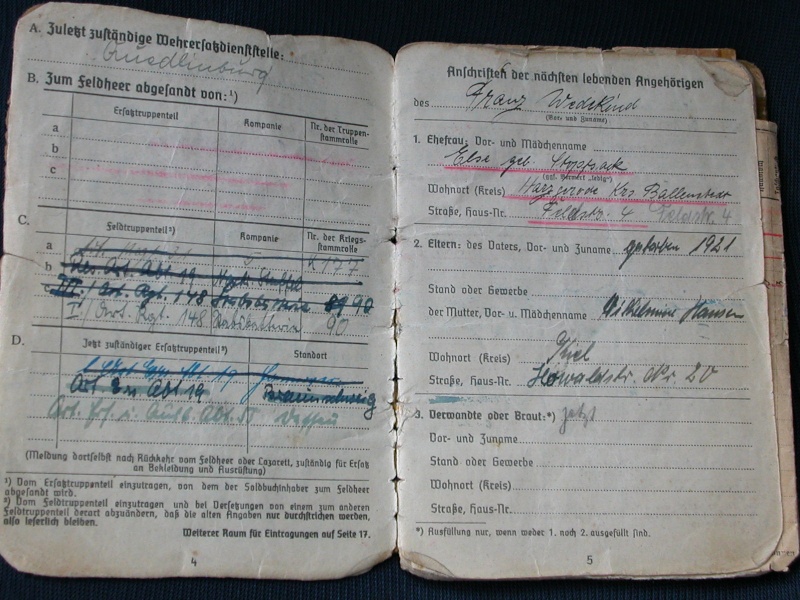 A. Zuletzt zuständige Wehrersatzdienststelle:
Quedlinburg
B. Zum Feldheer abgesandt von:¹)
Ersatztruppenteil Kompanie Nr. der Truppenstammrolle
a
b
c
C.
Feldtruppenteil²) Kompanie Nr. der Kriegsstammrolle
a 177
b Art. Abt 19
c III./Art. Rgt. 148 Stabsbttrie 89 90
I./Art. Rgt. 148 Stabsbatterie 90
D.
Jetzt zuständiger Ersatztruppenteil³) Standort
Art. Ers. Abt 19 Braunschweig
Art. Ers. u. Ausb. Abt. Dessau
(Meldung dortselbst nach Rückkehr vom Feldheer oder Lazarett, zuständig für Ersatz
an Bekleidung und Ausrüstung)
¹) Vom Ersatztruppenteil einzutragen, von dem der Soldbuchinhaber zum Feldheer
abgesandt wird.
²) Vom Feldtruppenteil einzutragen und bei Versetzungen von einem zum anderen
Feldtruppenteil derart abzuändern, daß die alten Angaben nur durchstrichen werden,
also leserlich bleiben.
Weiterer Raum für Eintragungen auf Seite 17.
4
Anschriften der nächsten lebenden Angehörigen
des Franz Wedekind
(Vor- und Zuname)
1. Ehefrau: Vor- und Mädchenname
Else geb.
(ggf. Vermerk „ledig“)
Wohnort (Kreis) Harzgerode Krs. Ballenstedt
Straße, Haus-Nr. Feldstr. 4 Feldstr. 4
2. Eltern: des Vaters, Vor- und Zuname gestorben 1921
Stand oder Gewerbe
der Mutter, Vor- u. Mädchenname Wilhelmine Hansen
Wohnort (Kreis) Kiel
Straße, Haus-Nr. Howaldstr. Nr. 20
3. Verwandte oder Braut:*)
Vor- und Zuname
Stand oder Gewerbe
Wohnort (Kreis)
Straße, Haus-Nr.
*) Ausfüllung nur, wenn weder 1. noch 2. ausgefüllt sind.
5